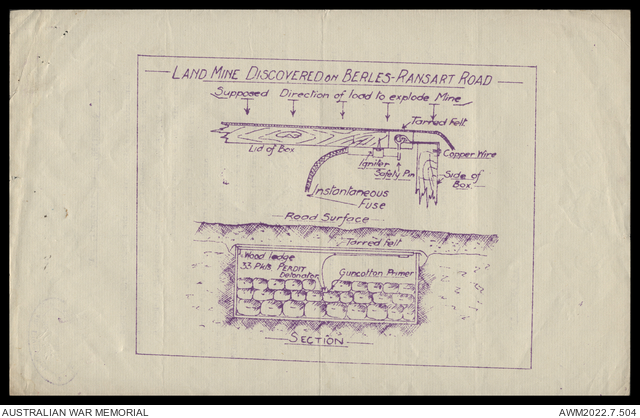 LAND MINE DISCOVERED ON BERLES-RANSART ROAD
Supposed Direction of load to explode Mine
Tarred Felt
Lid of Box
Copper Wire
Igniter
Safety Pin
Side of
Box
Instantaneous
Fuse
Road Surface
Tarred Felt
Wood ledge
33 Pkts PERDIT
Detonator
Guncotton Primer
SECTION
AUSTRALIAN WAR MEMORIAL
AWM2022.7.504